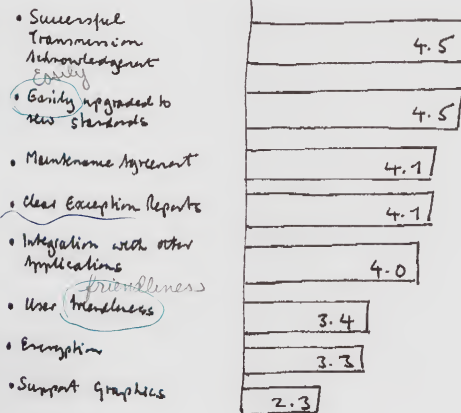 • Successful
Transmission
Acknowledgement
4.5
Easily
• Easily upgraded to
new standards
4.5
• Maintenance Agreement
4.1
• Clear Exception Reports
4.1
• Integration with other
Applications
4.0
friendliness
• User friendliness
3.4
• Encryption
3.3
• Support Graphics
2.3